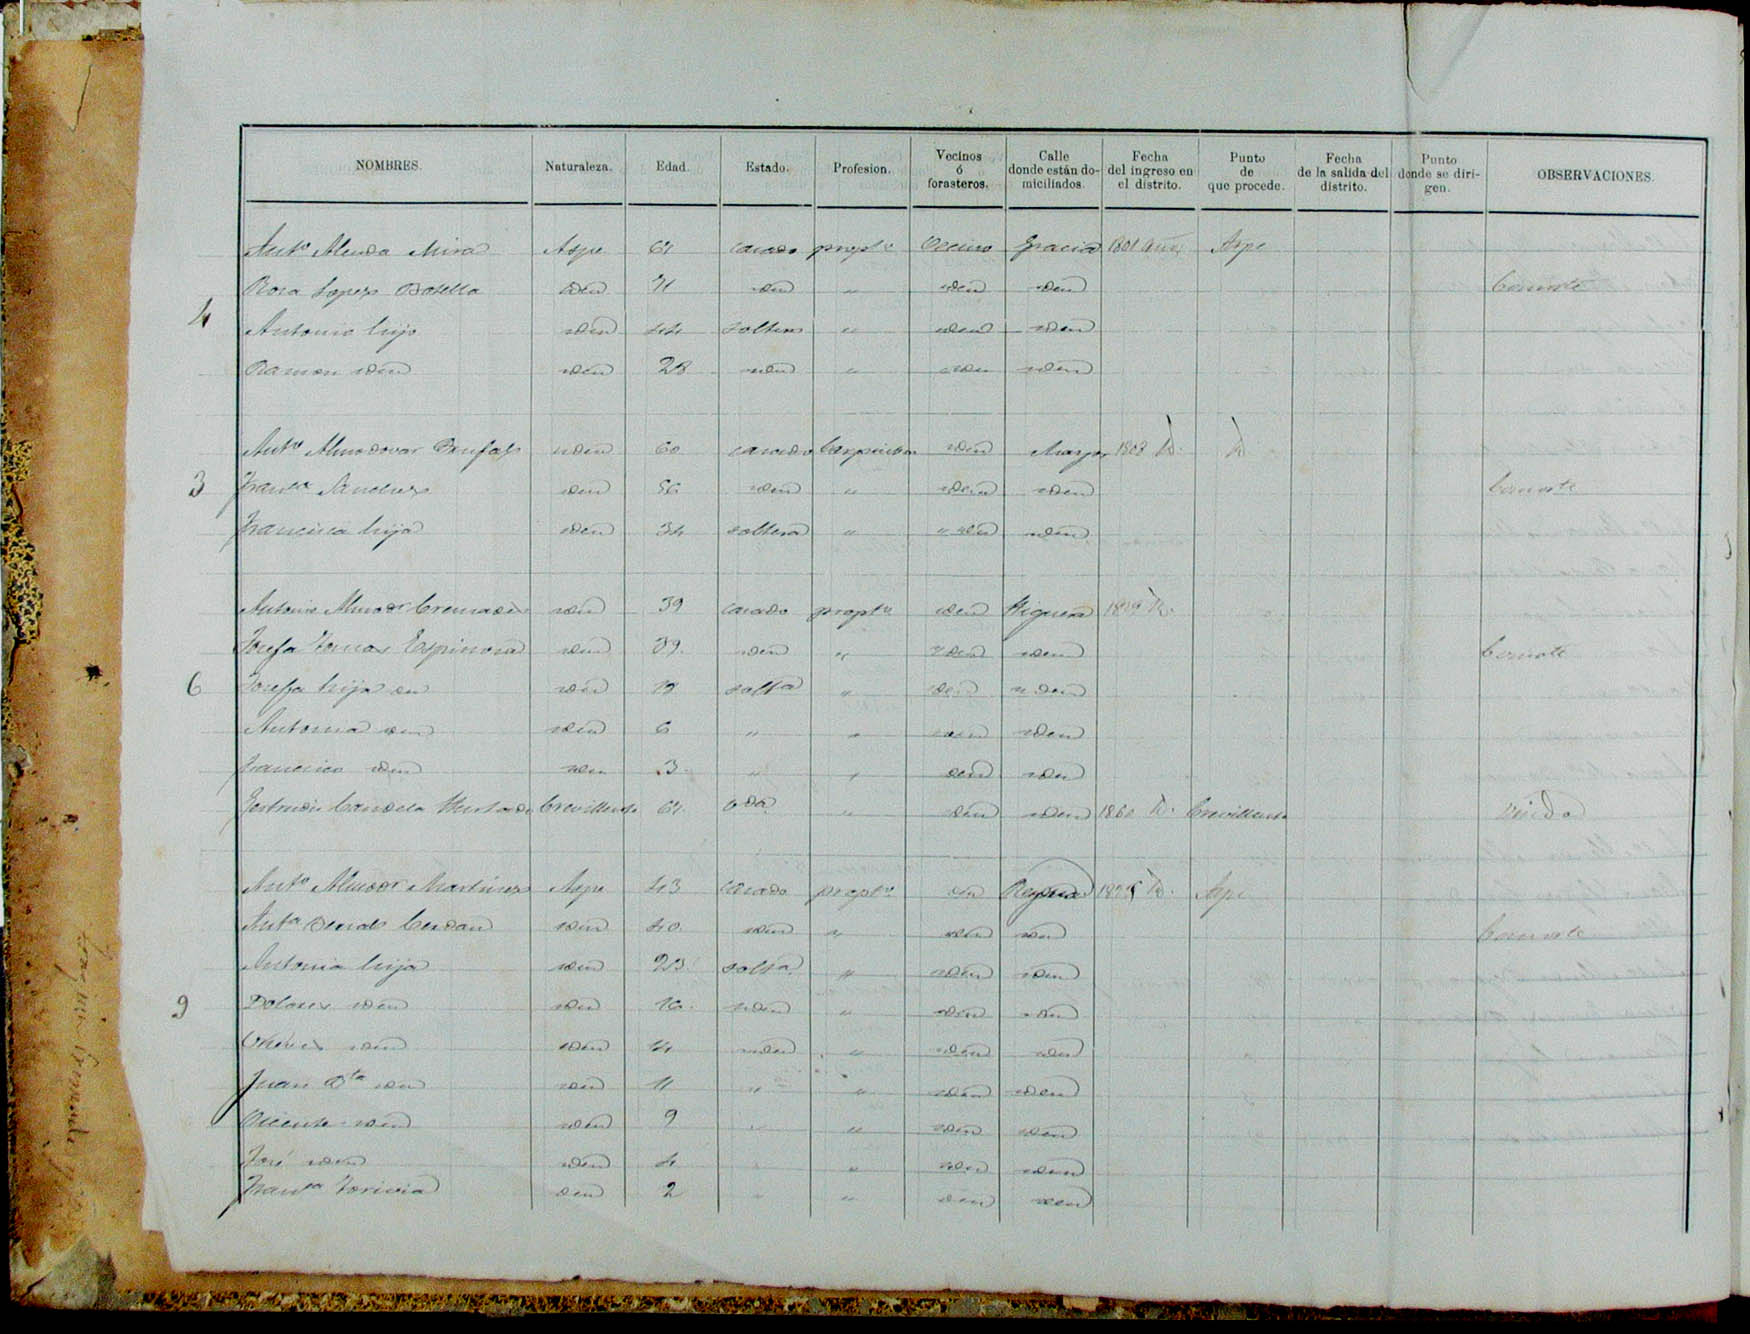 NOMBRES. Naturaleza. Edad. Estado. Profesion. Vecinos ó forasteros. Calle donde están domiciliados. Fecha del ingreso en el distrito. Punto de que procede. Fecha de la salida del distrito. Punto donde se dirigen. OBSERVACIONES.
Ant.º Alenda Mira Aspe 64 casado propt.º Vecino Gracia 1801 Aspe
Rosa Lopez Botella iden 71 iden " iden iden
4
Antonio hijo iden 44 soltero " iden iden
Ramon iden iden 28 iden " iden iden
Ant.º Almodovar iden 60 casado Carpintero iden Mayor 1808 Id. Id
3 Fran.ca Sanchez iden 56 iden " iden iden
Francisca hija iden 34 soltera " iden iden
Antonio Almod.r Cremades iden 39 casado propt.º iden Higuera Id.
Josefa Tomas Espinosa iden 39 iden " iden iden
6 Josefa hija iden iden 12 solt.a " iden iden
Antonia iden iden 6 " " iden iden
Francisco iden iden 3 " " iden iden
Gertrudis Candela Hurtado Crevillente 64 v.da " iden iden 1860 Id. Crevillente
Ant.º Almod.r Martinez Aspe 43 casado propt.º iden Id. Aspe
Ant.a Cerdan iden 40 iden " iden iden
Antonia hija iden 23 solt.a " iden iden
9 Dolores iden iden 16 iden " iden iden
iden iden 14 iden " iden iden
Juan B.ta iden iden 11 " " iden iden
Vicente iden iden 9 " " iden iden
José iden iden 4 " " iden iden
Fran.ca iden 2 " " iden iden